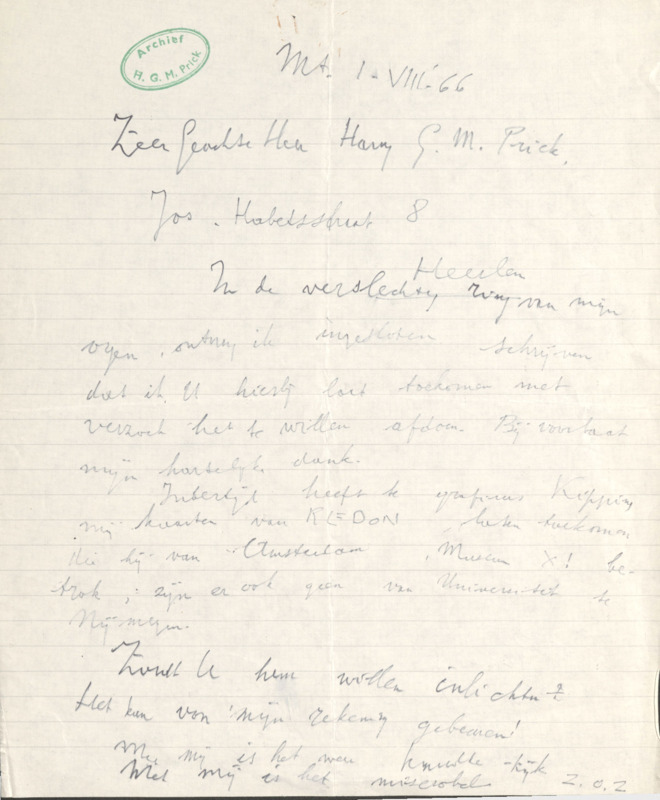 Archief
H. G. M. Prick
Mt. 1-VIII-66
Zeer Geachte Heer Harry G. M. Prick,
Jos. Habetsstraat 8
Heerlen
In de verslechting van mijn
ogen, ontving ik ingesloten schrijven
dat ik U hierbij laat toekomen met
verzoek het te willen afdoen. Bij voorbaat
mijn hartelijke dank.
Intertijd heeft te Kipping
mij kaarten van KLEDON laten toekomen
die hij van Amsterdam, Museum X! be-
trok; zijn er ook geen van Universiteit te
Nijmegen.
Zoudt U hem willen inlichten?
Het kan van mijn rekening gebeuren!
Met mij is het
Met mij is het miserabel Z.O.Z